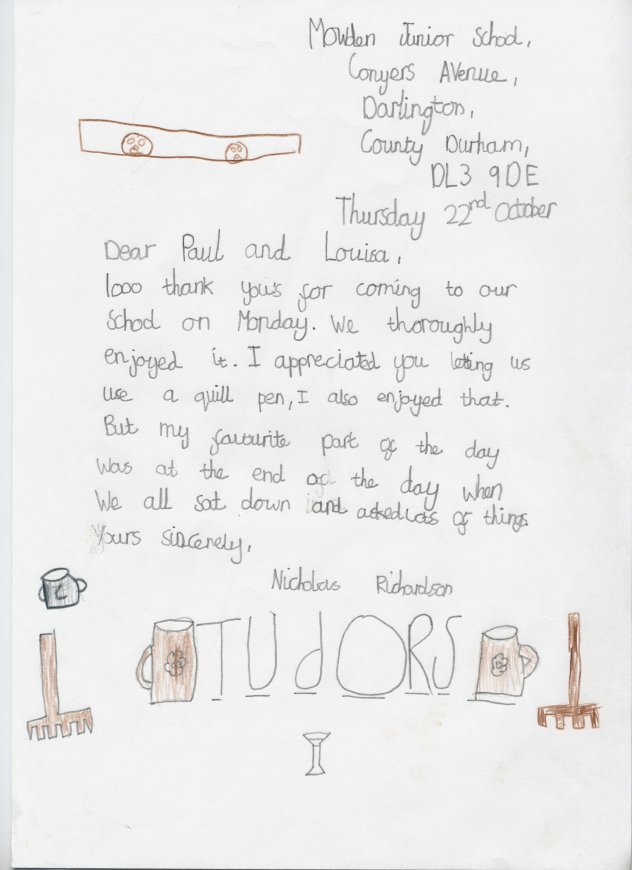 Mowden Junior School,
Conyers Avenue,
Darlington,
County Durham,
DL3 9DE
Thursday 22nd October
Dear Paul and Louisa,
1000 thank you's for coming to our
School on Monday. We thoroughly
enjoyed it. I appreciated you leting us
use a quill pen, I also enjoyed that.
But my favourite part of the day
was at the end of the day when
We all sat down and asked lots of things
Yours sincerely,
Nicholas Richardson
TUdORS